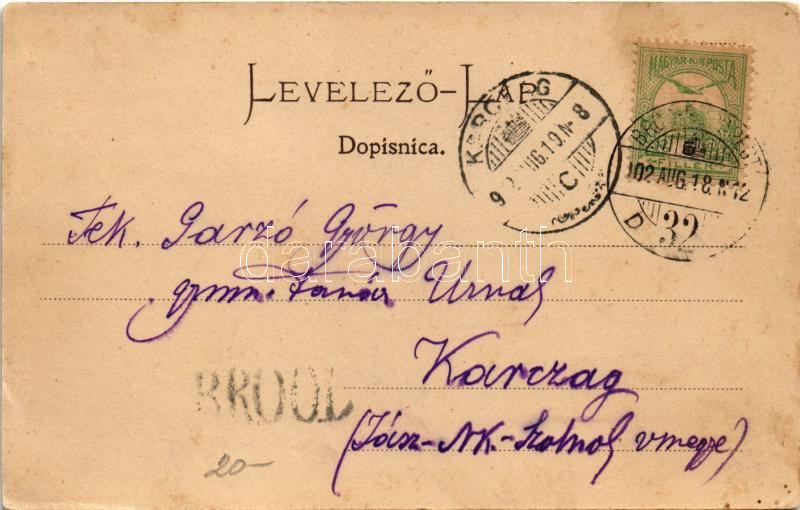 LEVELEZŐ-LAP
Dopisnica.
MAGYAR KIR. POSTA
FILLÉR
KARCZAG
902 AUG. 19. N. 8
C
902 AUG. 18. N. 12
D
32
Tek. Garzó György
gymn. tanár Urnak
Karczag
(Jász-NK-Szolnok vmegye)
BROOD
20-
darabanth